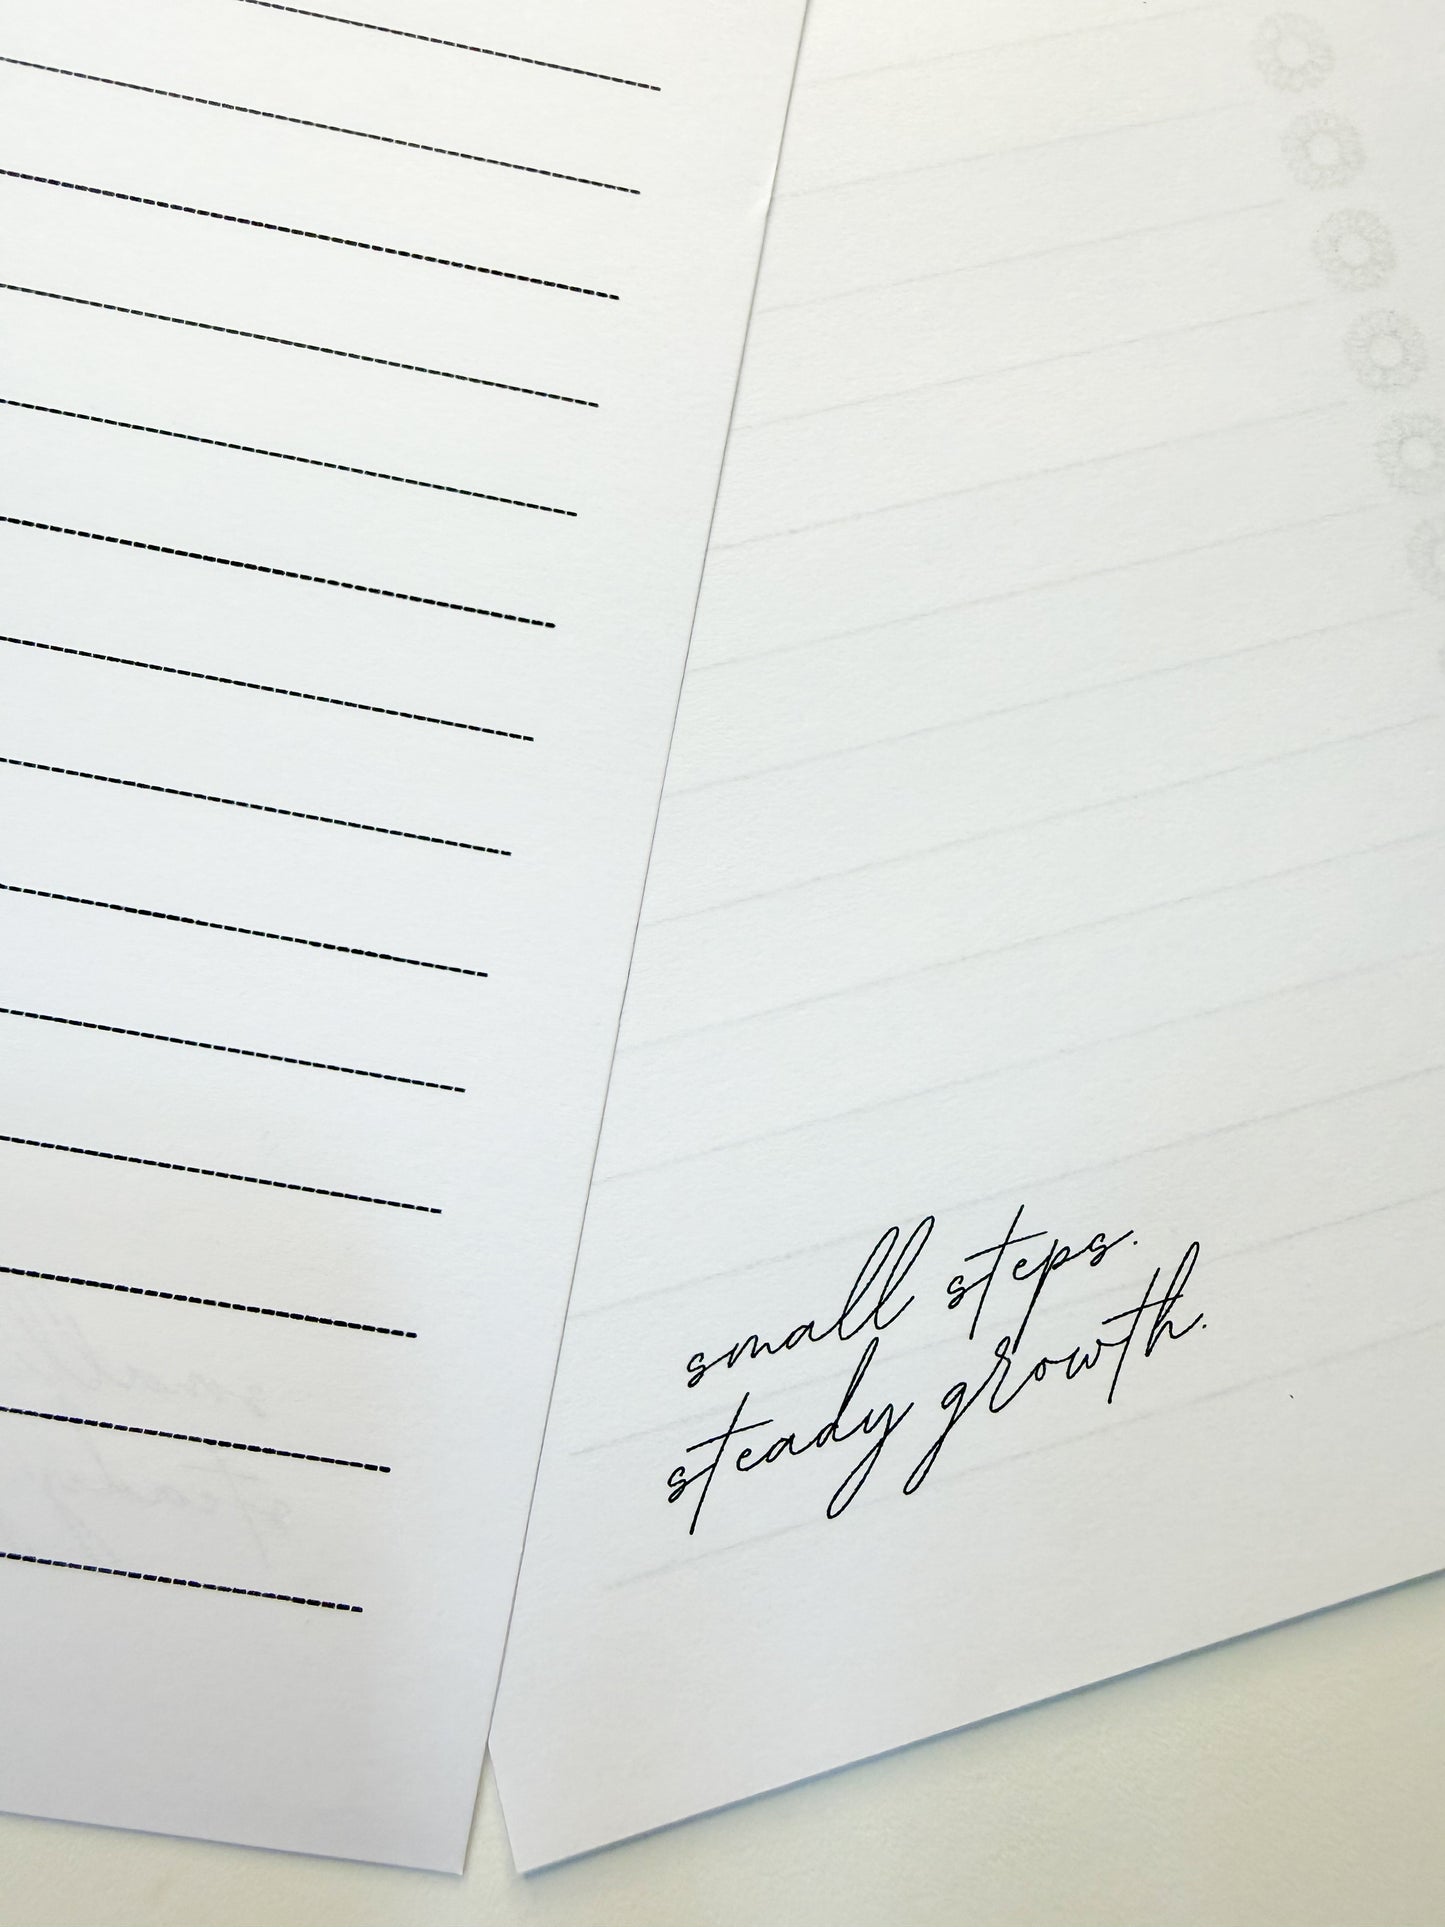 small steps.
steady growth.